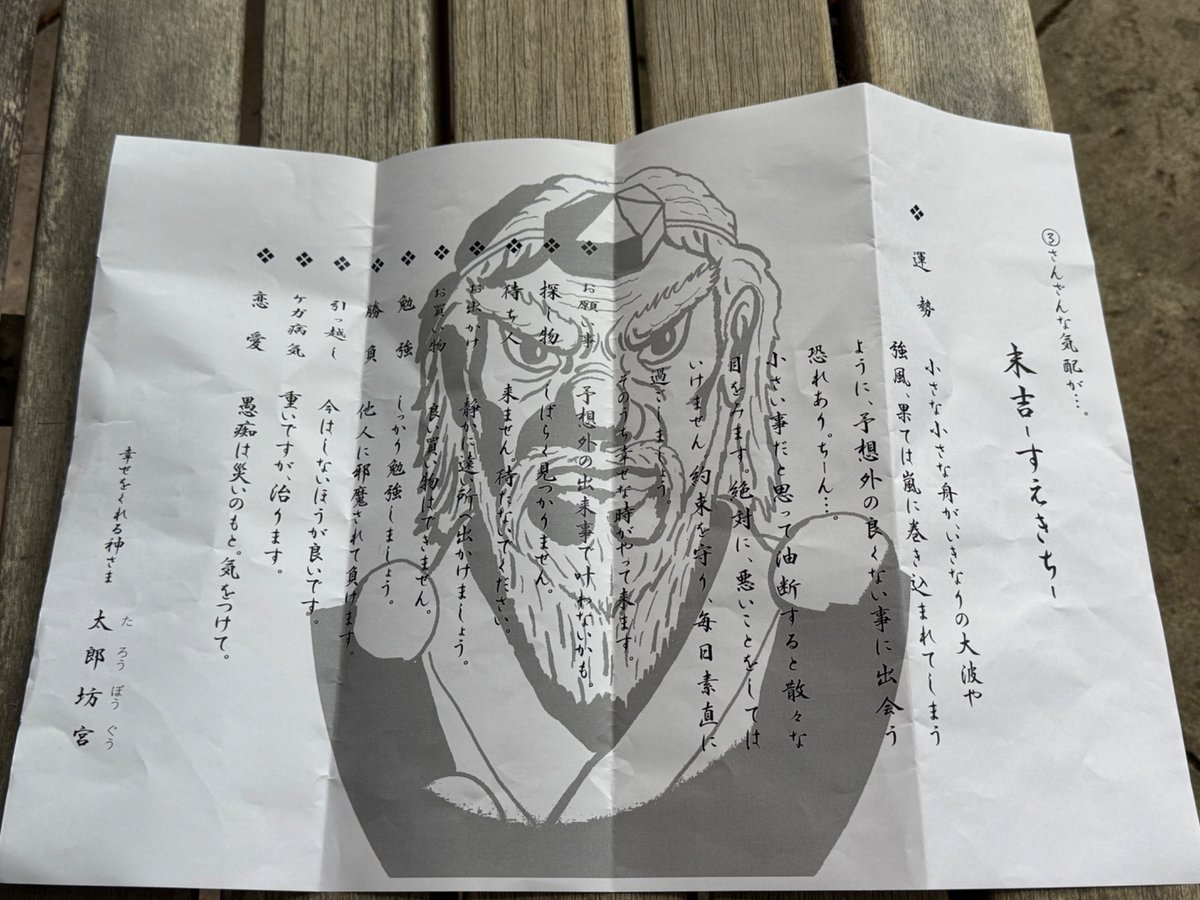 ③さんざんな気配が…。
末吉ーすえきちー
❖運勢
小さな小さな舟が、いきなりの大波や
強風、果ては嵐に巻き込まれてしまう
ように、予想外の良くない事に出会う
恐れあり。ちーん…。
小さい事だと思って油断すると散々な
目をみます。絶対に、悪いことをしては
いけません。約束を守り、毎日素直に
過ごしましょう。
そのうち幸せな時がやって来ます。
❖お願事 予想外の出来事で叶わないかも。
❖探し物 しばらく見つかりません。
❖待ち人 来ません。待たないでください。
❖お出かけ 静かに遠い所へ出かけましょう。
❖お買い物 良い買い物はできません。
❖勉強 しっかり勉強しましょう。
❖勝負 他人に邪魔されて負けます。
❖引っ越し 今はしないほうが良いです。
❖ケガ病気 重いですが、治ります。
❖恋愛 愚痴は災いのもと。気をつけて。
幸せをくれる神さま 太郎坊宮
たろうぼうぐう